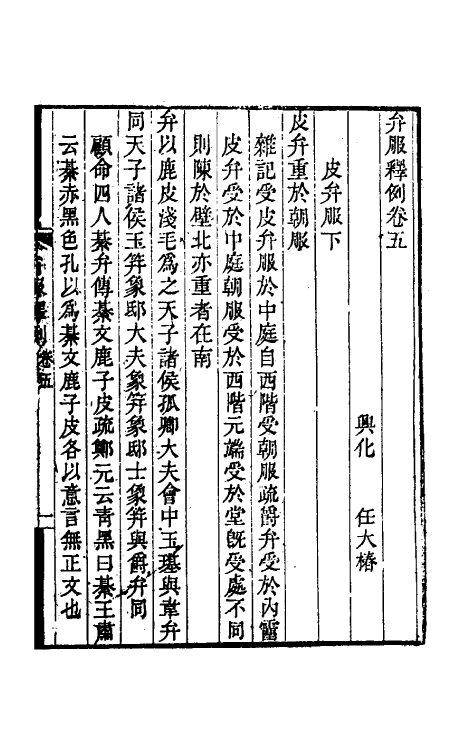 弁服釋例卷五
興化 任大椿
皮弁服下
皮弁重於朝服
雜記受皮弁服於中庭自西階受朝服疏爵弁受於內霤
皮弁受於中庭朝服受於西階元端受於堂旣受處不同
則陳於壁北亦重者在南
弁以鹿皮淺毛爲之天子諸侯孤卿大夫會中玉璂與韋弁
同天子諸侯玉筓象邸大夫象筓象邸士象筓與爵弁同
顧命四人綦弁傳綦文鹿子皮疏鄭元云靑黑曰綦王肅
云綦赤黑色孔以爲綦文鹿子皮各以意言無正文也
弁服釋例 卷五 一